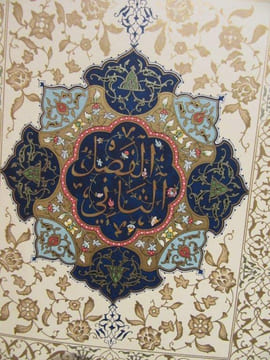 الفصل
الثاني